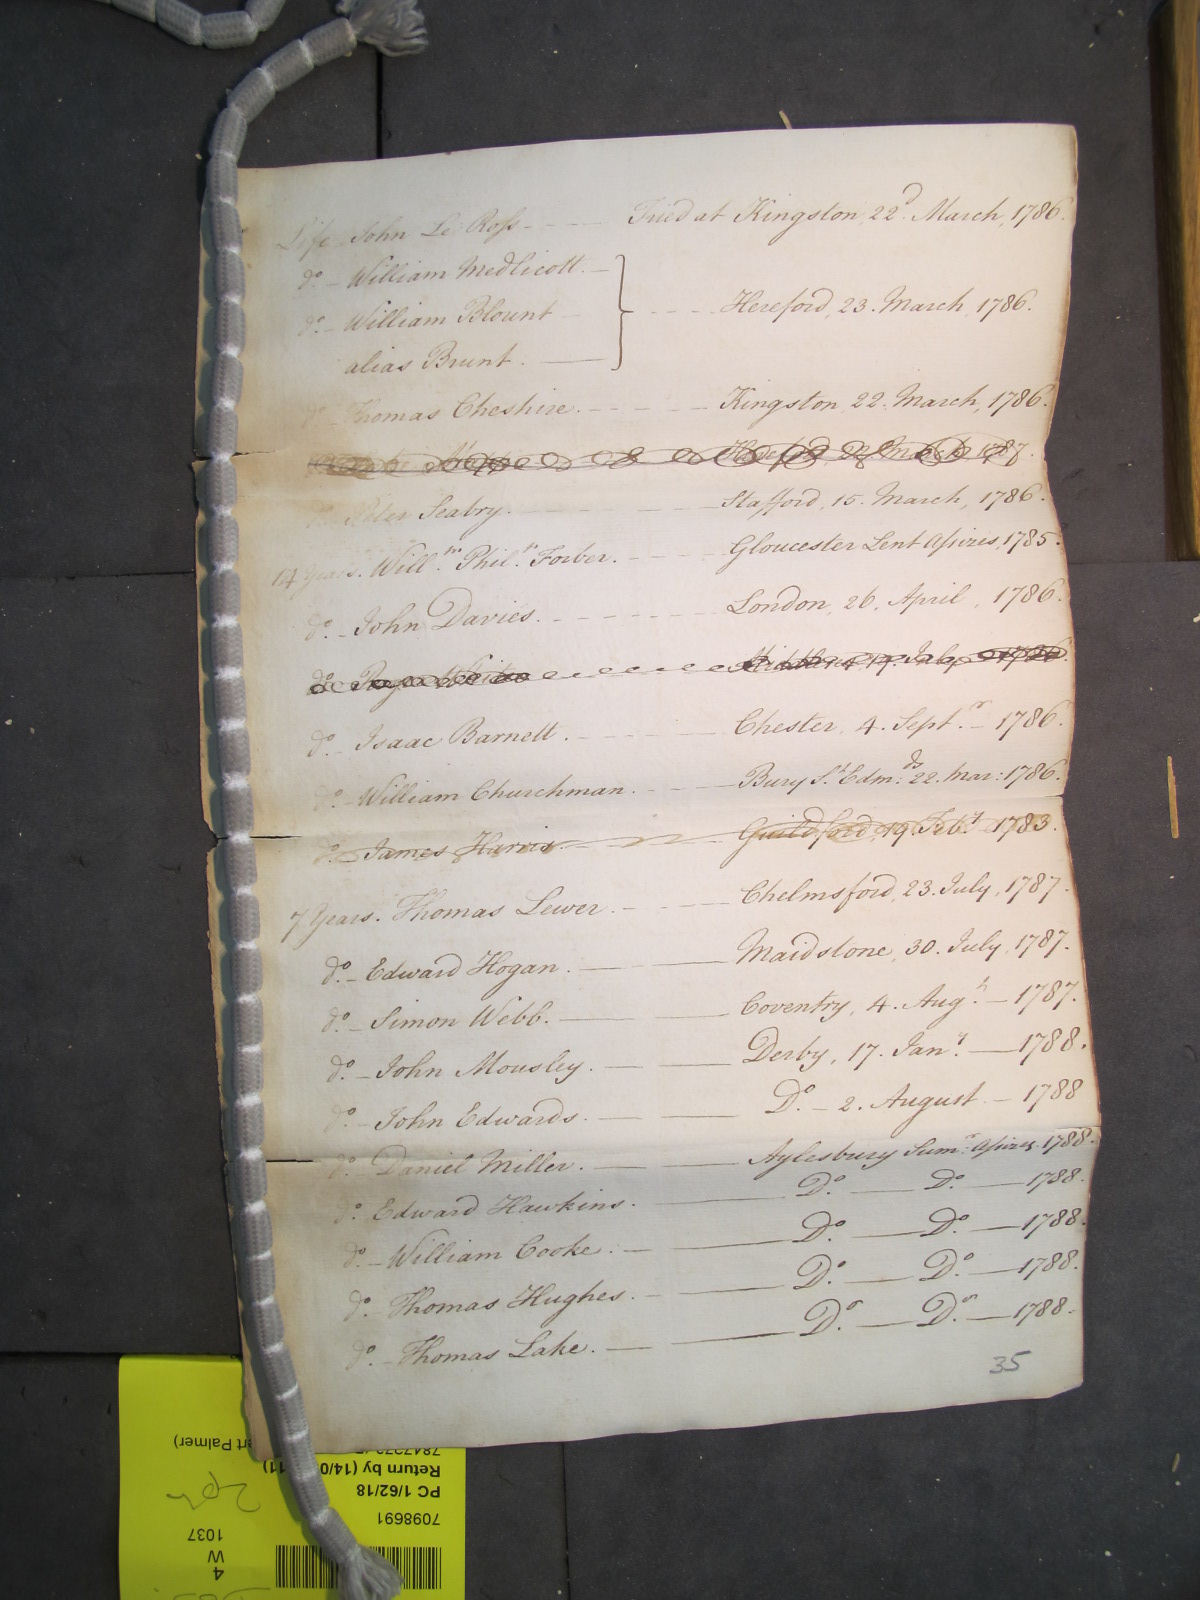 Life John Le Ross - - - - Tried at Kingston, 22d. March, 1786.
do. - William Medlicott. -
do. - William Blount - - - - Hereford, 23. March, 1786.
alias Brunt. -
do. Thomas Cheshire. - - - - Kingston, 22. March, 1786.
March 1787.
do. Peter Seabry. - - - - Stafford, 15. March, 1786.
14 Years. Willm. Philn. Forber. - - - - Gloucester Lent Assizes, 1785.
do. - John Davies. - - - - London, 26. April, 1786.
do. July, 1786.
do. - Isaac Barnett. - - - - Chester, 4. Septr. - 1786.
do. - William Churchman. - - - - Bury St. Edmds. 22. Mar: 1786.
do. - James Harris. - Guildford, 19 Feby. 1783.
7 Years. Thomas Lewer. - - - - Chelmsford, 23. July, 1787.
do. - Edward Hogan. - - Maidstone, 30. July, 1787.
do. - Simon Webb. - - Coventry, 4. Augt. - 1787.
do. - John Mousley. - - Derby, 17. Jany. - 1788.
do. - John Edwards. - - Do. - 2. August - 1788
do. Daniel Miller. - - Aylesbury Sumr. Assizes 1788.
do. Edward Hawkins. - Do. - Do. - 1788.
do. - William Cooke. - - Do. - Do. - 1788.
do. - Thomas Hughes. - - Do. - Do. - 1788.
do. - Thomas Lake. - - Do. - Do. - 1788.
35
ert Palmer)
Return by (14/0
11)
PC 1/62/18
7098691
1037
W
4